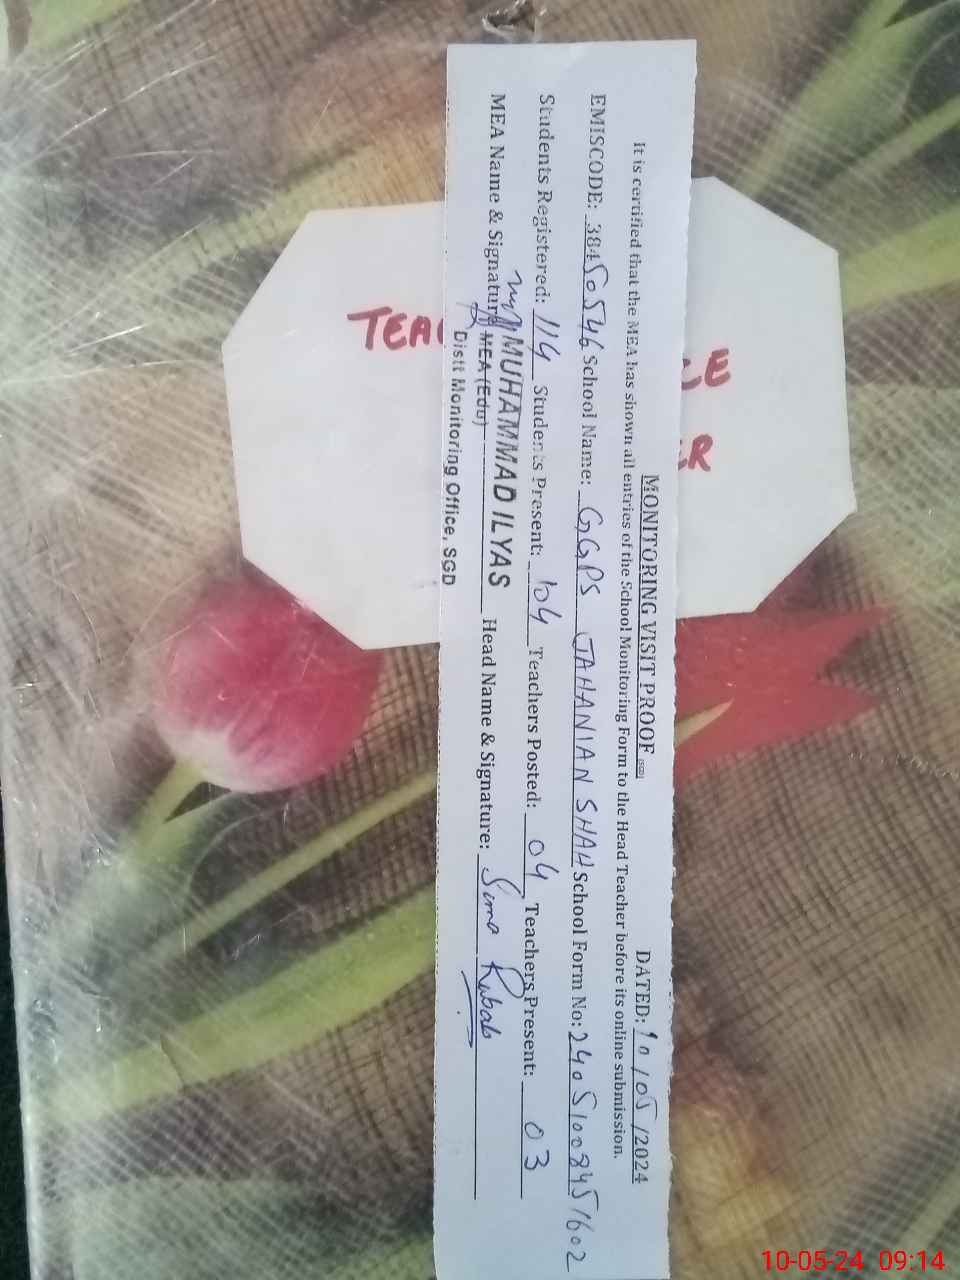 MONITORING VISIT PROOF (SGD) DATED: 10/05/2024
It is certified that the MEA has shown all entries of the School Monitoring Form to the Head Teacher before its online submission.
EMISCODE: 38450546 School Name: GGPS JAHANIAN SHAH School Form No: 24051008451602
Students Registered: 114 Students Present: 104 Teachers Posted: 04 Teachers Present: 03
MEA Name & Signature MUHAMMAD ILYAS Head Name & Signature: Sima
MEA (Edu)
Distt Monitoring Office, SGD
TEA
CE
ER
10-05-24 09:14